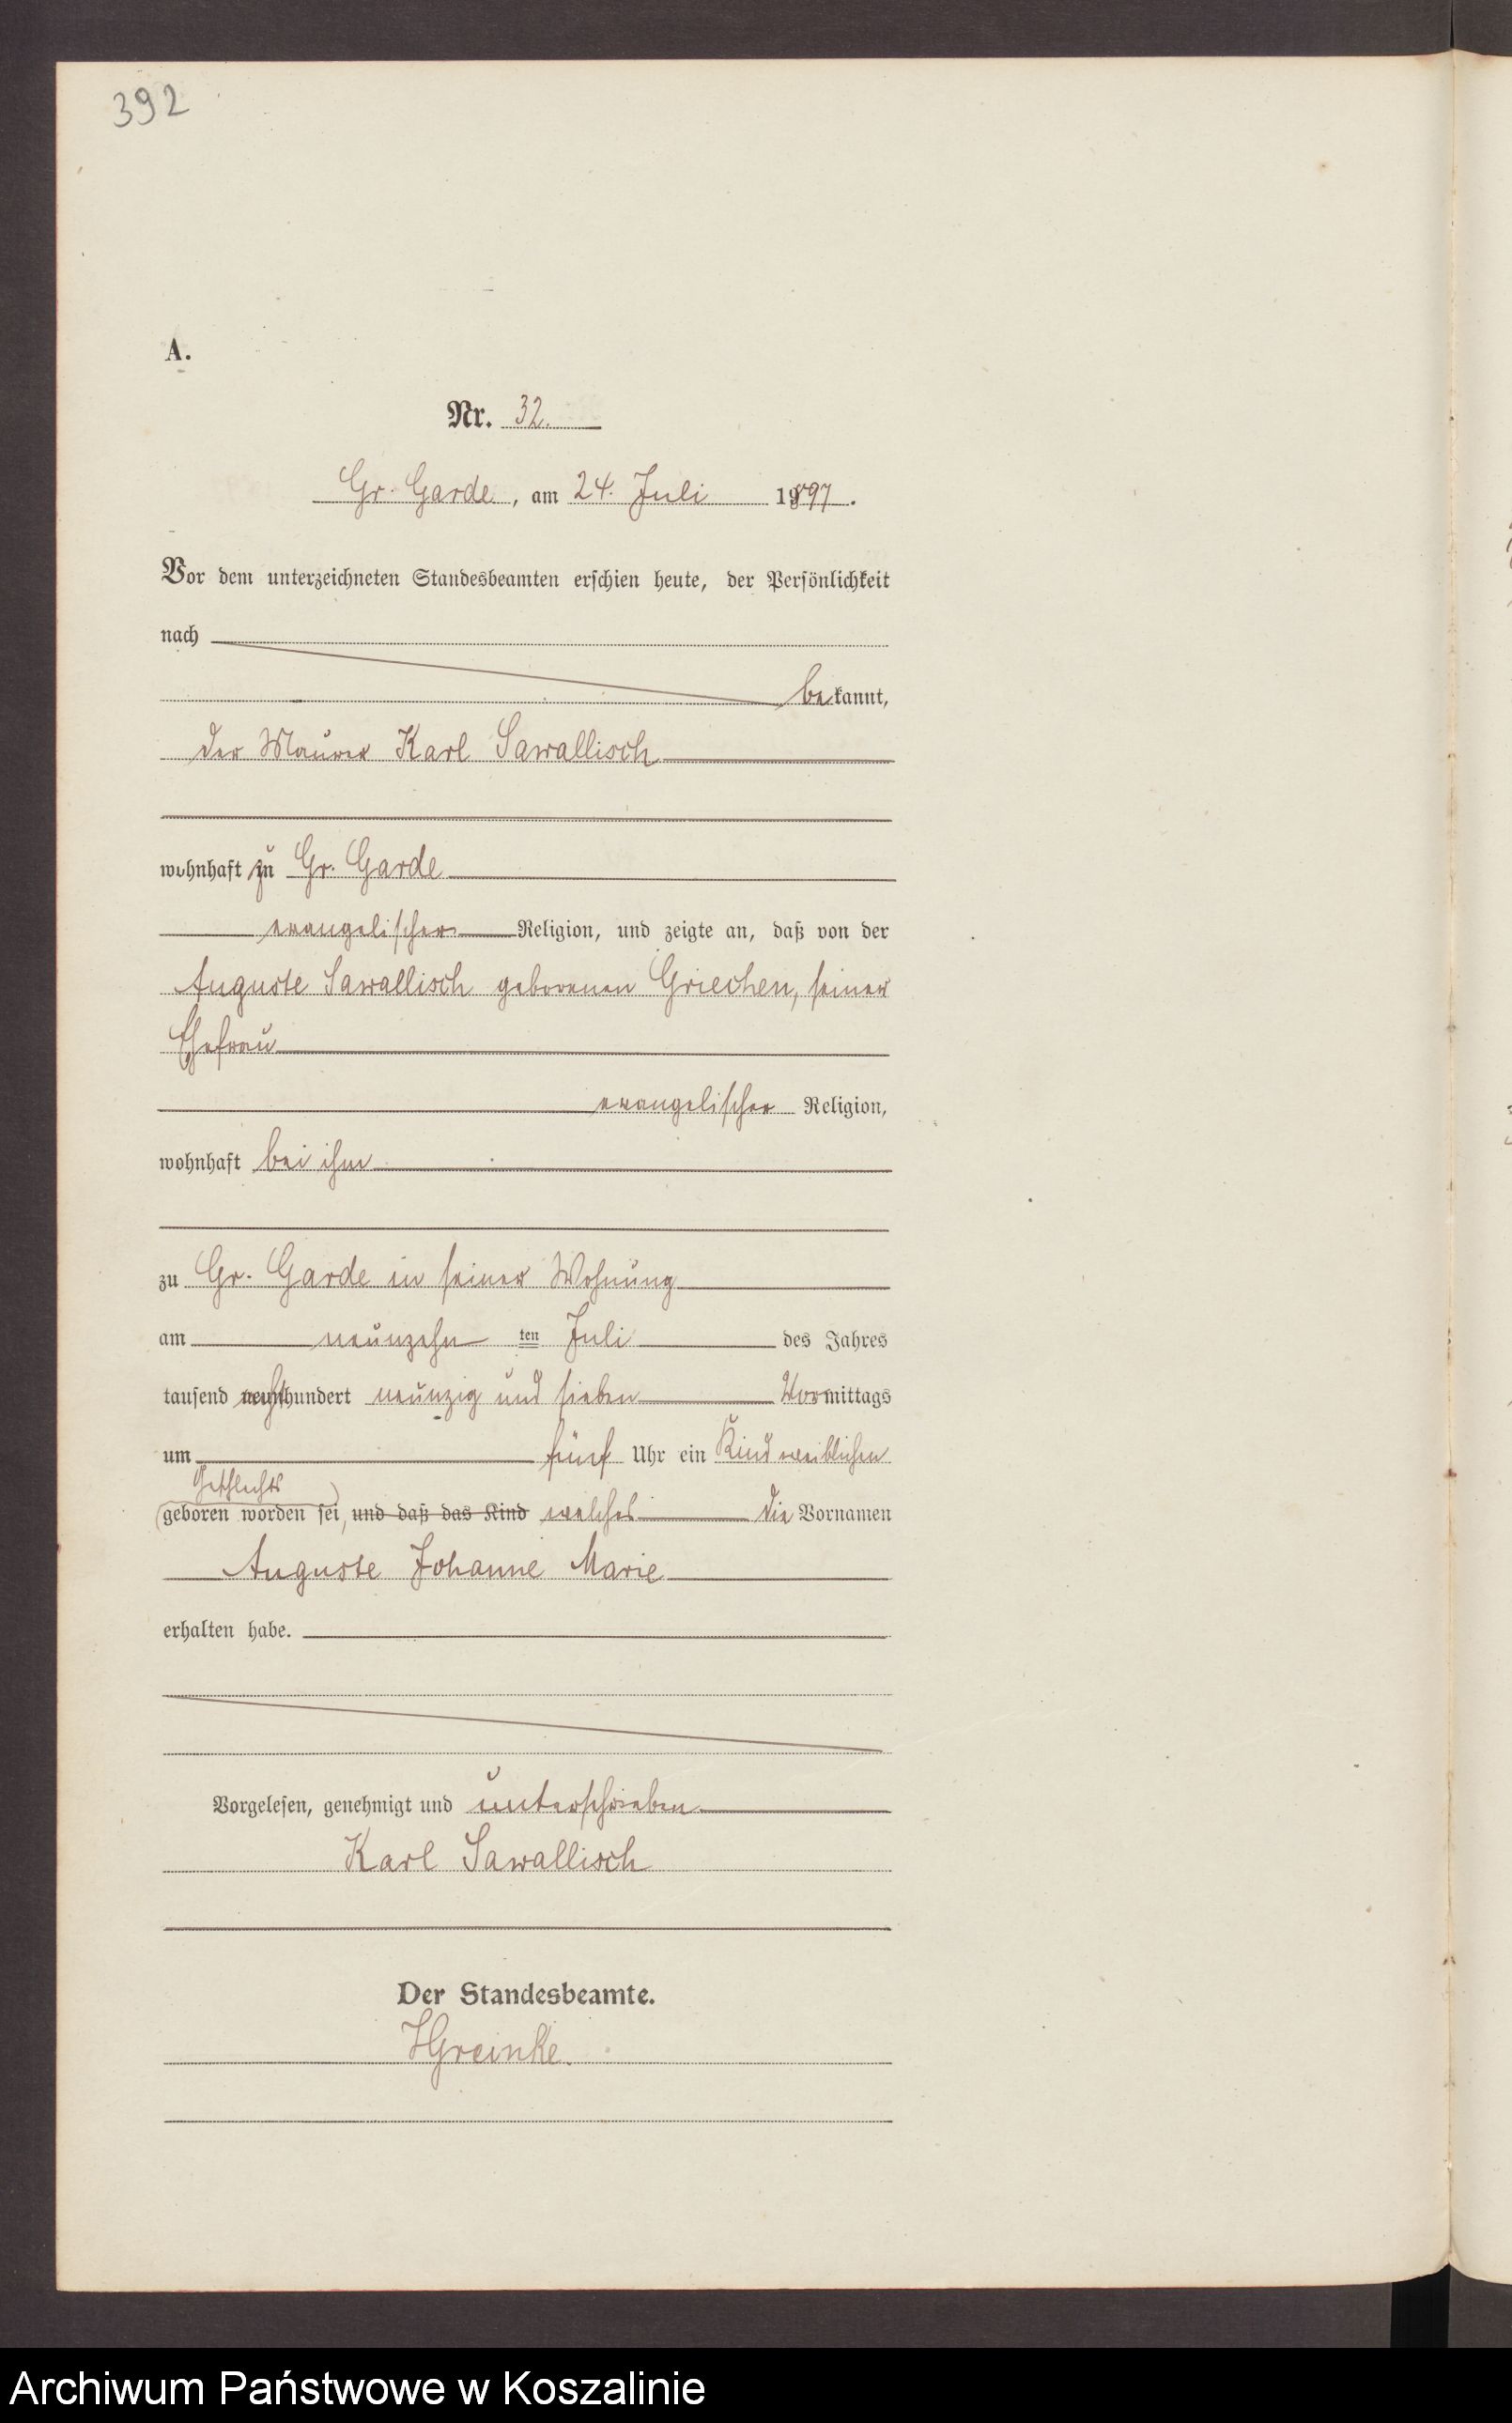 392
A.
Nr. 32.
Gr. Garde, am 24. Juli 1897.
Vor dem unterzeichneten Standesbeamten erschien heute, der Persönlichkeit
nach
bekannt,
der Maurer Karl Sawallisch
wohnhaft zu Gr. Garde
evangelischer Religion, und zeigte an, daß von der
Auguste Sawallisch geborenen Griechen, seiner
Ehefrau
evangelischer Religion,
wohnhaft bei ihm
zu Gr. Garde in seiner Wohnung
am neunzehn ten Juli des Jahres
tausend achthundert neunzig und sieben Vormittags
um fünf Uhr ein Kind weiblichen
Geschlechts
geboren worden sei, und daß das Kind welches die Vornamen
Auguste Johanne Marie
erhalten habe.
Vorgelesen, genehmigt und unterschrieben
Karl Sawallisch
Der Standesbeamte.
HGreinke.
Archiwum Państwowe w Koszalinie